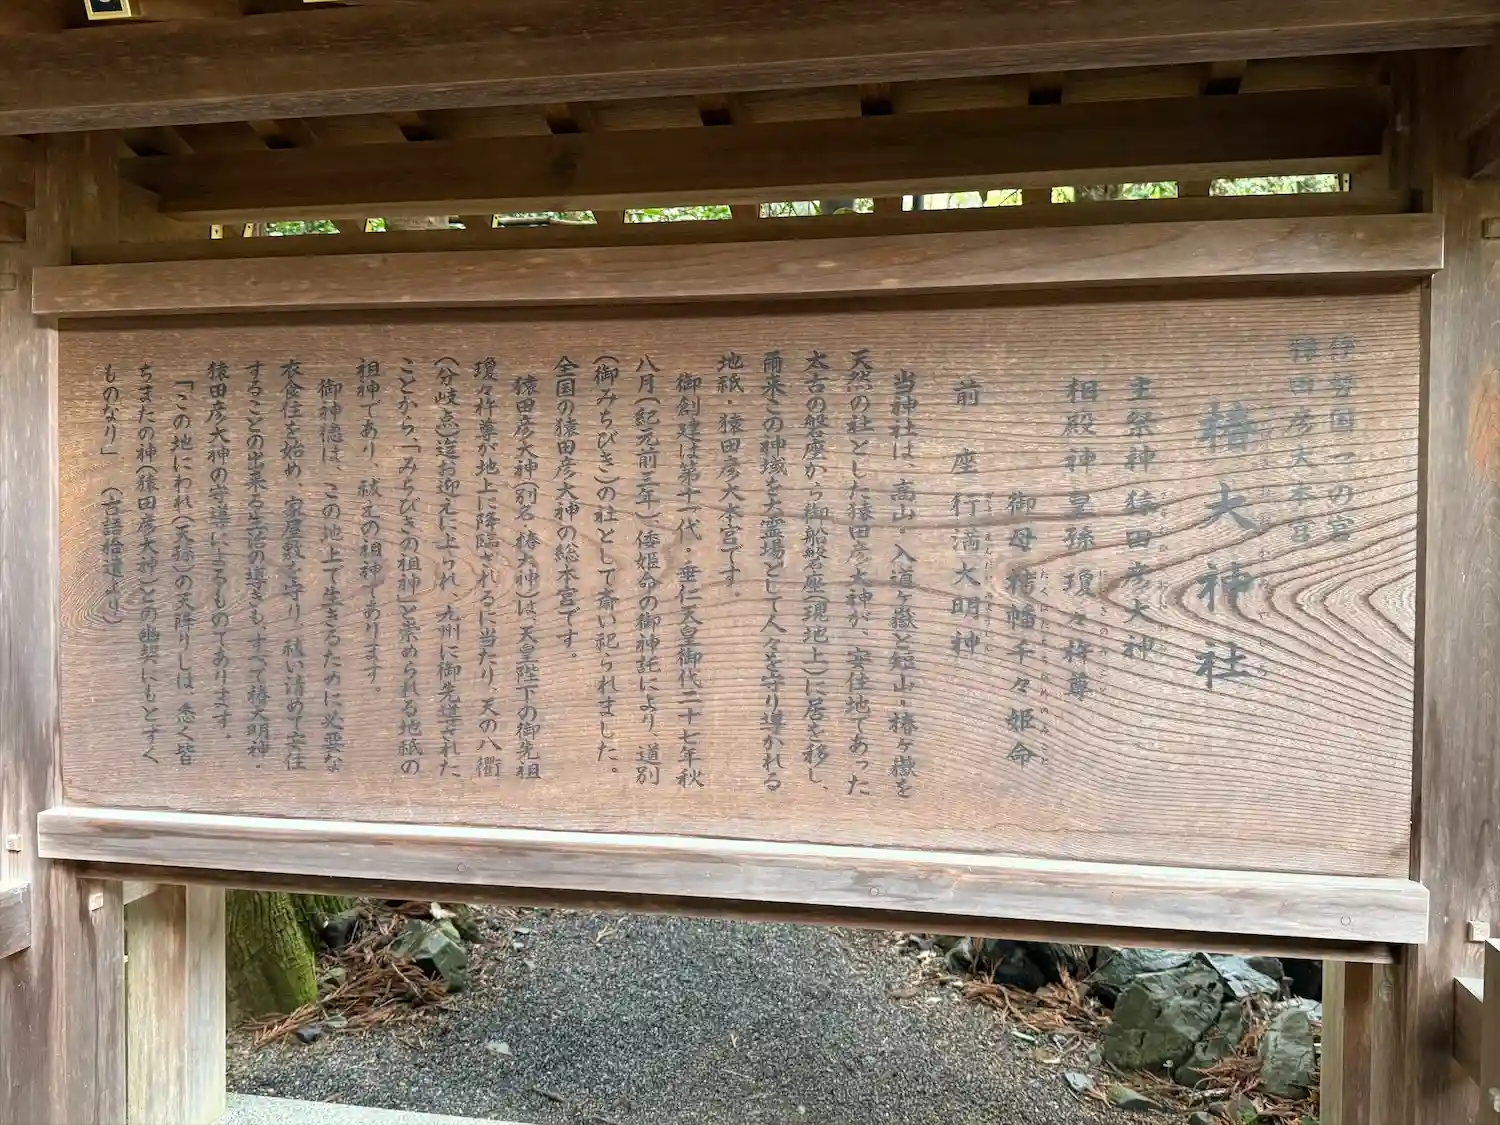 伊勢国一の宮
猿田彦大本宮
椿大神社
主祭神 猿田彦大神
相殿神 皇孫 瓊々杵尊
御母 栲幡千々姫命
前座 行満大明神
当神社は、高山・入道ヶ嶽と短山・椿ヶ嶽を
天然の社とした猿田彦大神が、安住地であった
太古の磐座から御船磐座(現地上)に居を移し、
爾来この神域を大霊場として人々を守り導かれる
地祇・猿田彦大本宮です。
御創建は第十一代・垂仁天皇御代二十七年秋
八月(紀元前三年)、倭姫命の御神託により、道別
(御みちびき)の社として斎い祀られました。
全国の猿田彦大神の総本宮です。
猿田彦大神(別名・椿大神)は、天皇陛下の御先祖
瓊々杵尊が地上に降臨されるに当たり、天の八衢
(分岐点)迄お迎えに上られ、九州に御先導された
ことから、「みちびきの祖神」と崇められる地祇の
祖神であり、祓えの祖神であります。
御神徳は、この地上で生きるために必要な
衣食住を始め、家屋敷を守り、祓い清めて安住
することの出来る生活の導きも、すべて椿大明神・
猿田彦大神の守導によるものであります。
「この地にわれ(天孫)の天降りしは、悉く皆
ちまたの神(猿田彦大神)との幽契にもとずく
ものなり」 (古語拾遺より)